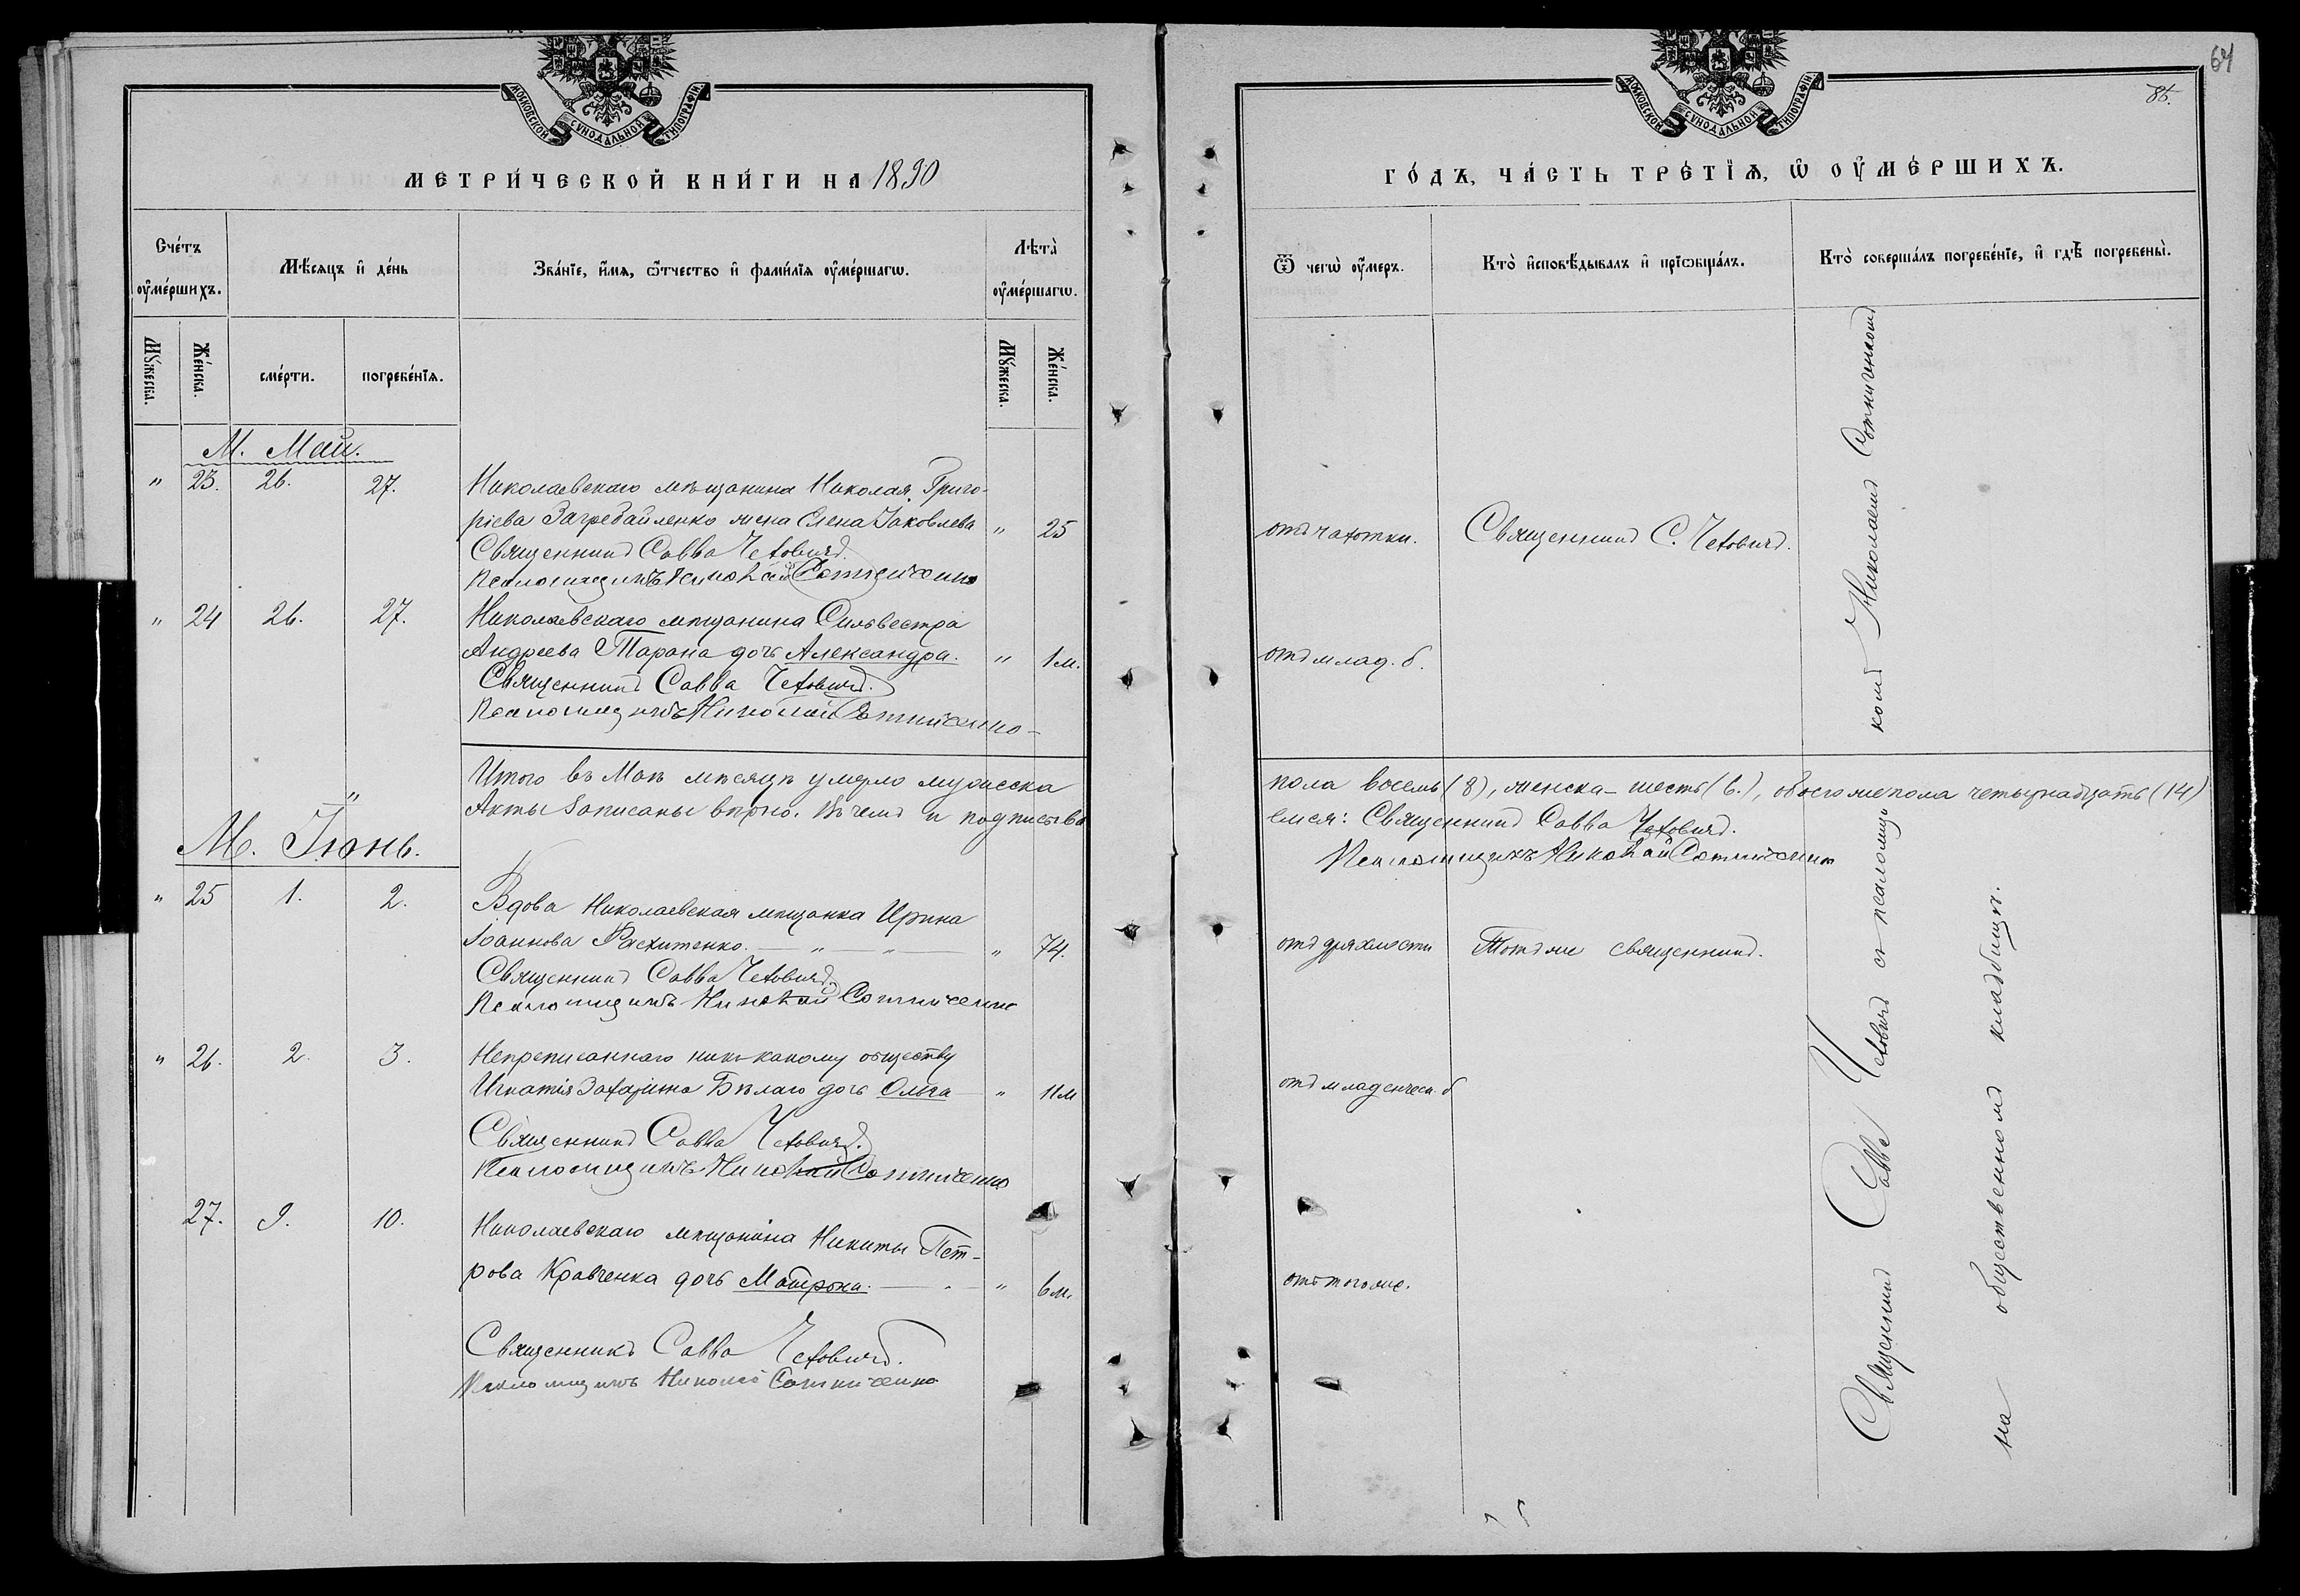 МОСКОВСКОЙ СѴНОДАЛЬНОЙ ТИПОГРАФІИ
МЕТРИ́ЧЕСКОЙ КНИ́ГИ НА 1890
Сче́тъ оу҆ме́ршихъ.
Мѣ́сяцъ и҆ де́нь
Зва́нїе, и҆́мя, ѻ҆́тчество и҆ фами́лїя оу҆ме́ршагѡ.
Лѣ́та оу҆ме́ршагѡ.
Мꙋ́жеска.
Же́нска.
сме́рти.
погребе́нїя.
Мꙋ́жеска.
Же́нска.
М. Май.
" 23. 26. 27.
Николаевскаго мѣщанина Николая Григо-
ріева Загребайленко жена Елена Іаковлева " 25
Священникъ Савва Чехович.
Псаломщикъ Николай Сотниченко
" 24 26. 27.
Николаевскаго мѣщанина Сильвестра
Андреева Тарана дочь Александра. " 1 м.
Священникъ Савва Чеховичъ.
Псаломщикъ Николай Сотниченко
Итого въ Маѣ мѣсяцѣ умерло мужеска
Акты записаны вѣрно. Въ чемъ и подписыва
"
М. Іюнь.
" 25 1. 2.
Вдова Николаевская мѣщанка Ирина
Іоаннова Расхитенко. — " — " — " 74.
Священникъ Савва Чеховичъ.
Псаломщикъ Николай Сотниченко
" 26. 2. 3.
Неприписаннаго никъ какому обществу
Игнатія Захаріина Бѣлаго дочь Ольга " 11 м
Священникъ Савва Чеховичъ.
Псаломщикъ Николай Сотниченко
27. 9. 10.
Николаевскаго мѣщанина Никиты Пет-
рова Кравченка дочь Матрона. — " 6 м.
Священникъ Савва Чеховичъ.
Псаломщикъ Николай Сотниченко
64
85.
МОСКОВСКОЙ СѴНОДАЛЬНОЙ ТИПОГРАФІИ
ГО́ДЪ, ЧА́СТЬ ТРЕ́ТЇѦ, Ѡ҆ ОУ҆МЕ́РШИХЪ.
Ѿ чегѡ̀ оу҆́меръ.
Кто̀ и҆сповѣ́дывалъ и҆ прїѡбща́лъ.
Кто̀ соверша́лъ погребе́нїе, и҆ гдѣ̀ погребены̀.
отъ чахотки. Священникъ С. Чеховичъ.
отъ млад. б.
пола восемь (8), женска – шесть (6.), обоего же пола четырнадцать (14)
емся: Священникъ Савва Чеховичъ.
Псаломщикъ Николай Сотниченко
отъ дряхлости Тотъ же священникъ.
отъ младенческ. б
отъ того же.
Священникъ Савва Чеховичъ съ псаломщи
комъ Николаемъ Сотниченкомъ
на общественномъ кладбищѣ.